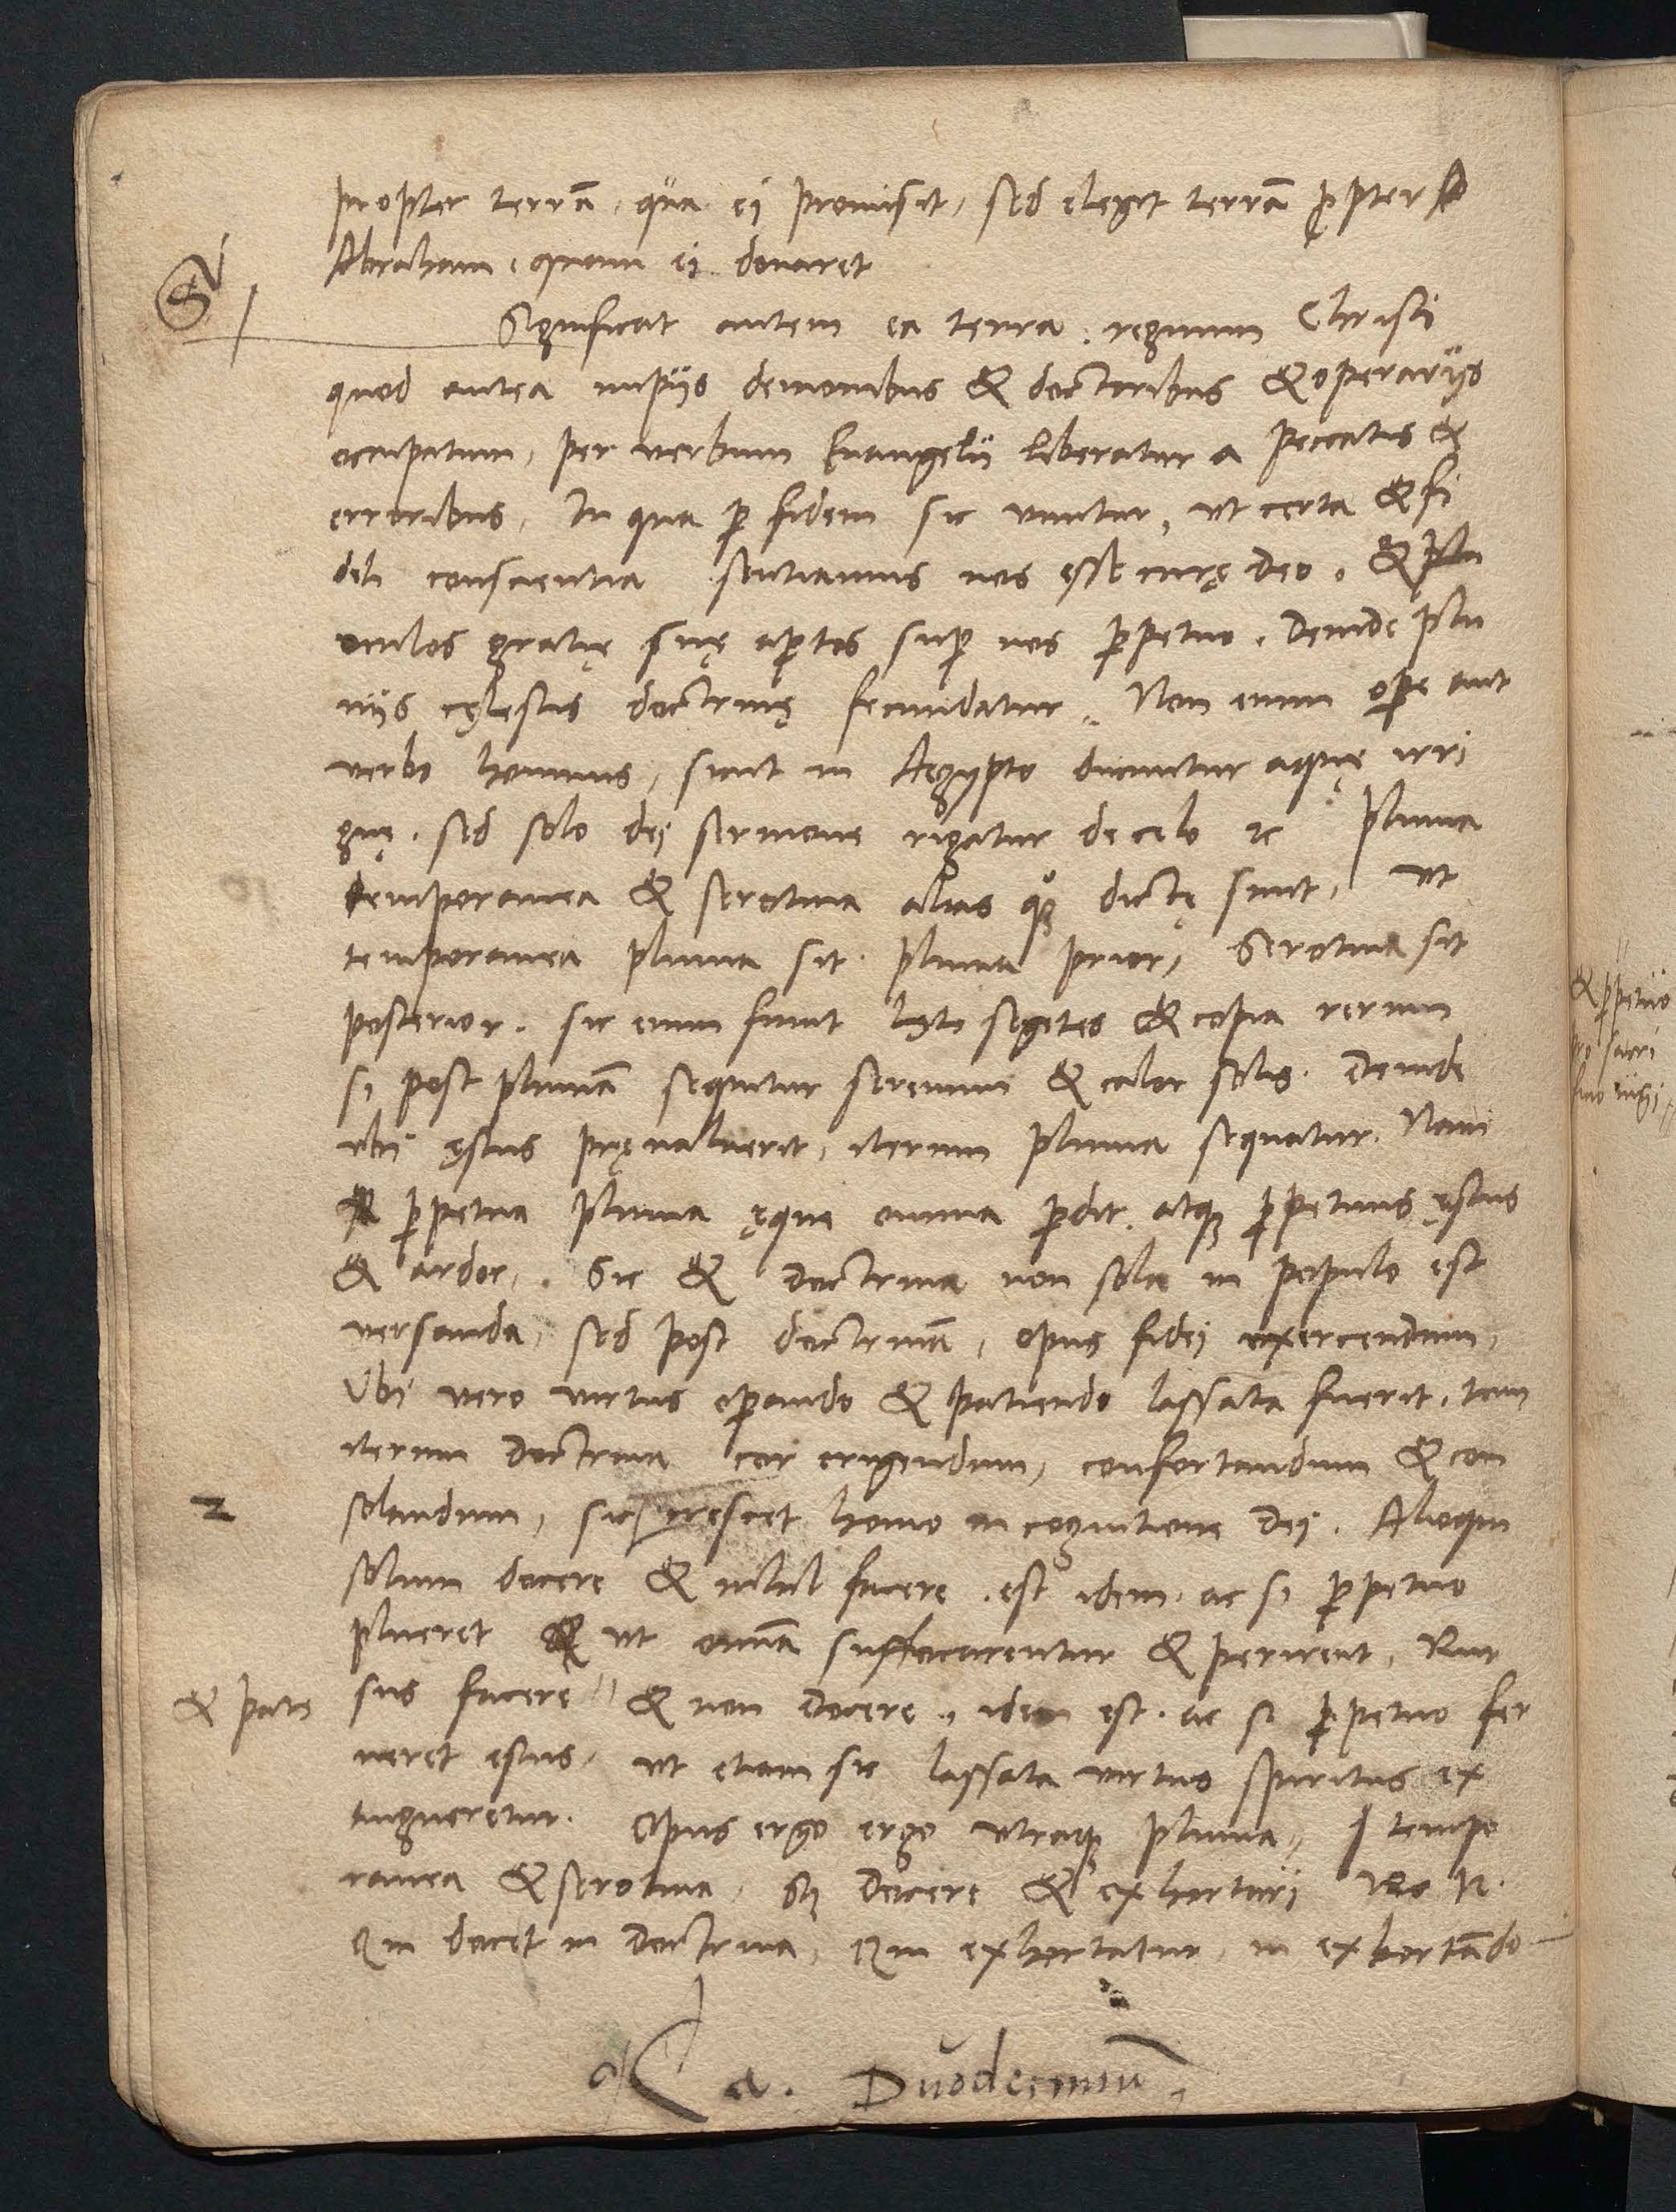 propter terrā, qua ei promisit, sed elegit terrā ꝓpter
Abraham, quam ei donaret
Significat autem ea terra, regnum Christi
quod antea impijs demonibus & doctoribus & operarijs
occupatum, per verbum Euangelii liberatur a peccatis &
erroribus, In qua ꝑ fidem sic viuitur, vt certa & fi
deli conscientia sentiamus nos esse curę deo, &
oculos gratię suę aꝑtos suꝑ nos ꝑpetuo. Deinde plu
uijs cęlestis doctrinę fecundatur. Non enim oꝑe aut
verbo hominis, sicut in Aegypto ducuntur aquę irri
guę. sed solo dei sermone rigatur de celo ⁊c Pluuia
temporanea & serotina alias qͦꝫ dictę sunt, vt
temporanea pluuia sit pluuia prior, Serotina sit
posterior. sic enim fiunt lętę segetes & copia rerum
si post pluuiā sequitur serenum & calor solis. Deinde
vbi ęstus pręualuerit, iterum pluuia sequatur. Nam
ꝑpetua pluuia ęque omnia ꝑdit, atqꝫ ꝑpetuus ęstus
& ardor. Sic & doctrina non sola in populo est
versanda, sed post doctrinā, opus fidei exercendum,
Vbi vero virtus oꝑando & patiendo lassata fuerit, tum
iterum doctrina cor erigendum, confortandum & con
solandum, sic crescet homo in cognitione dei. Alioqui
solum docere & nihil facere, est idem ac si ꝑpetuo
plueret vt omīa suffocarentur & perirent, Rur
& pati sus facere & non docere, idem est. ac si ꝑpetuo fer
ueret estus, vt etiam sic lassata virtus spiritus ex
tingueretur. Opus ergo ergo vtraqꝫ pluuia, tempo
ranea & serotina, Sꝫ docere & exhortari Ro 12.
Qui docet in doctrina, Qui exhortatur, in exhortādo
Ca. Duodecimū